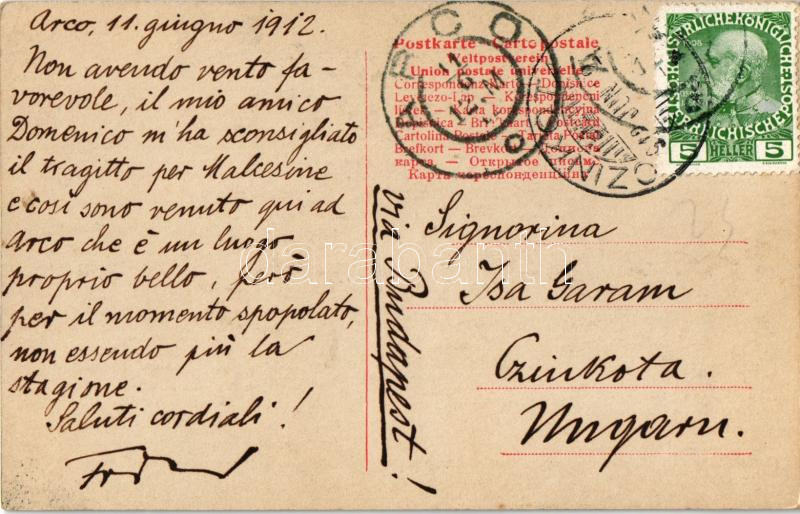 Arco, 11. giugno 1912.
Non avendo vento fa-
vorevole, il mio amico
Domenico m'ha sconsigliato
il tragitto per Malcesine
e così sono venuto qui ad
Arco che è un luogo
proprio bello, però
per il momento spopolato,
non essendo più la
stagione.
Saluti cordiali!
Postkarte - Carte postale
Weltpostverein
Union postale universelle
Correspondenz-Karte - Dopisnice
Levelező-Lap
Cartolina Postale - Tarjeta Postal
Brefkort - Brevkort
карта. - Открытое письмо.
Карта корреспонденційна
ARCO
5 HELLER 5
1908
Signorina
Isa Garam
Czinkota.
Ungarn.
via Budapest!
darabanth